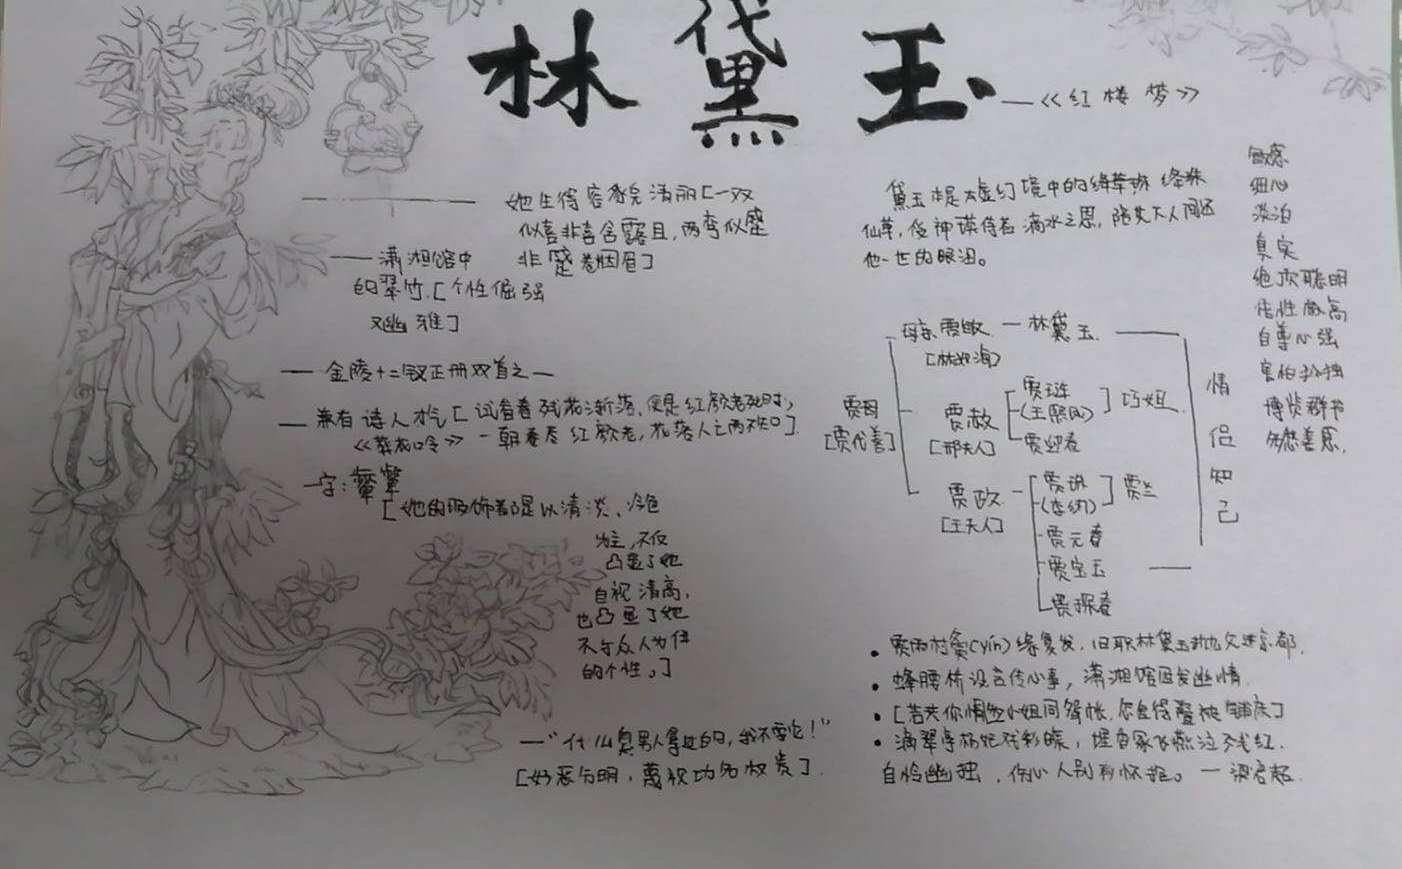 林黛玉
—《红楼梦》
她生得容貌清丽[一双
似喜非喜含露目,两弯似蹙
非蹙卷烟眉]
—潇湘馆中
的翠竹.[个性倔强
又幽雅]
—金陵十二钗正册双首之一
—兼有诗人才气[试看春残花渐落,便是红颜老死时;
《葬花吟》一朝春尽红颜老,花落人亡两不知].
一字:颦颦
[她的服饰都是以清淡、冷色
为主,不仅
凸显了她
自视清高,
也凸显了她
不与众人为伴
的个性。]
—"什么臭男人拿过的,我不要它!"
[好恶分明,蔑视功名权贵].
黛玉本是太虚幻境中的绛珠
仙草,受神瑛侍者滴水之恩,陪其下人间还
他一世的眼泪。
敏感
细心
淡泊
真实
绝顶聪明
悟性极高
自尊心强
害怕孤独
博览群书
多愁善感.
贾母
[贾代善]
母亲贾敏—林黛玉
[林如海]
贾赦
[邢夫人]
贾琏
(王熙凤)
巧姐
贾迎春
贾政
[王夫人]
贾珠
(李纨)
贾兰
贾元春
贾宝玉
贾探春
情侣知己
• 贾雨村夤(yín)缘复发,旧职林黛玉抛父进京都.
• 蜂腰桥设言传心事,潇湘馆因发幽情.
• [若共你情小姐同鸳帐,怎舍得叠被铺床]
• 滴翠亭杨妃戏彩蝶,埋香冢飞燕泣残红.
自怜幽独,伤心人别有怀抱。—梁启超.